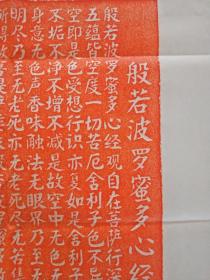 般若波罗蜜多心经
般若波罗蜜多心经观自在菩萨行深
五蘊皆空度一切苦厄舍利子色不异
空即是色受想行识亦复如是舍利
不垢不净不增不减是故空中无色
身意无色声香味触法无眼界乃至
明尽乃至无老死亦无老死尽无苦集